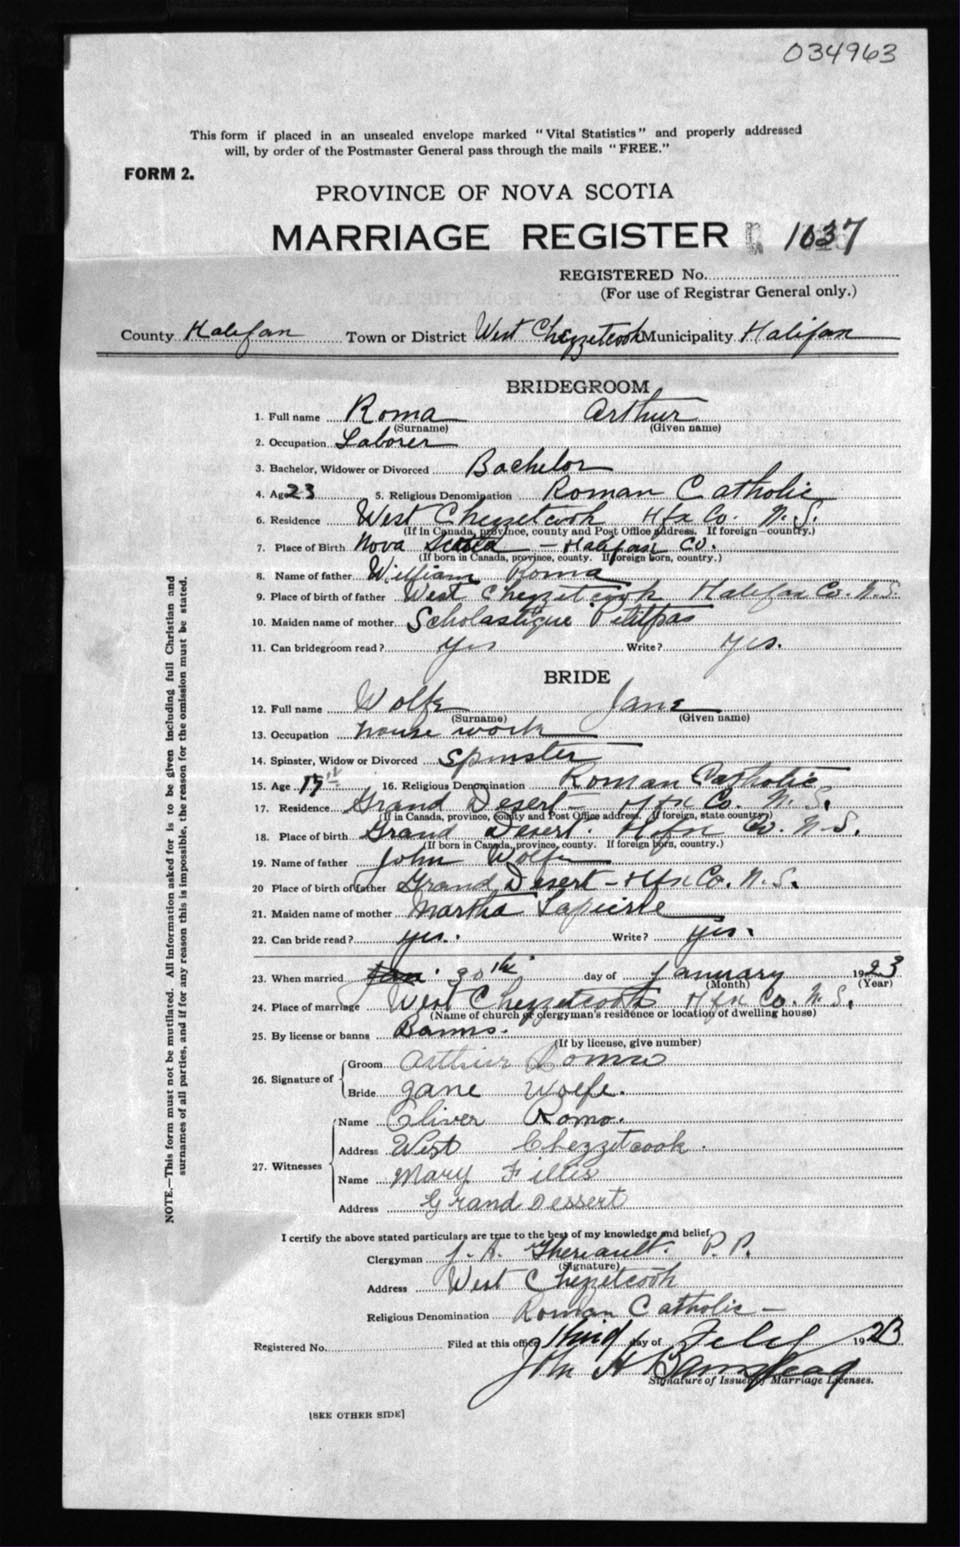 034963
This form if placed in an unsealed envelope marked "Vital Statistics" and properly addressed
will, by order of the Postmaster General pass through the mails "FREE."
FORM 2.
PROVINCE OF NOVA SCOTIA
MARRIAGE REGISTER 1037
REGISTERED No.
(For use of Registrar General only.)
County Halifax Town or District West Chezzetcook Municipality Halifax
BRIDEGROOM
1. Full name Roma Arthur
(Surname) (Given name)
2. Occupation Laborer
3. Bachelor, Widower or Divorced Bachelor
4. Age 23 5. Religious Denomination Roman Catholic
6. Residence West Chezzetcook Hfx Co. N.S.
(If in Canada, province, county and Post Office address. If foreign—country.)
7. Place of Birth Nova Scotia — Halifax Co.
(If born in Canada, province, county. If foreign born, country.)
8. Name of father William Roma
9. Place of birth of father West Chezzetcook Halifax Co. N.S.
10. Maiden name of mother Scholastique Petitpas
11. Can bridegroom read? Yes Write? Yes.
BRIDE
12. Full name Wolfe Jane
(Surname) (Given name)
13. Occupation house work
14. Spinster, Widow or Divorced Spinster
15. Age 16. Religious Denomination Roman Catholic
17. Residence Grand Desert — Hfx Co. N.S.
(If in Canada, province, county and Post Office address. If foreign, state country.)
18. Place of birth Grand Desert. Hfx Co. N.S.
(If born in Canada, province, county. If foreign born, country.)
19. Name of father John Wolfe
20 Place of birth of father Grand Desert — Hfx Co. N.S.
21. Maiden name of mother Martha Lapierre
22. Can bride read? yes. Write? yes.
23. When married Jan. 30th day of January 1923
(Month) (Year)
24. Place of marriage West Chezzetcook Hfx Co. N.S.
(Name of church or clergyman's residence or location of dwelling house)
25. By license or banns Banns.
(If by license, give number)
26. Signature of
Groom Arthur Roma
Bride Jane Wolfe.
27. Witnesses
Name Oliver Romo.
Address West Chezzetcook.
Name Mary Fillis
Address Grand Dessert
I certify the above stated particulars are true to the best of my knowledge and belief,
Clergyman J. A. Theriault. P.P.
(Signature)
Address West Chezzetcook
Religious Denomination Roman Catholic —
Registered No. Filed at this office third day of Feb 1923
John H Barnstead
Signature of Issuer of Marriage Licenses.
[SEE OTHER SIDE]
NOTE.—This form must not be mutilated. All information asked for is to be given including full Christian and
surnames of all parties, and if for any reason this is impossible, the reason for the omission must be stated.